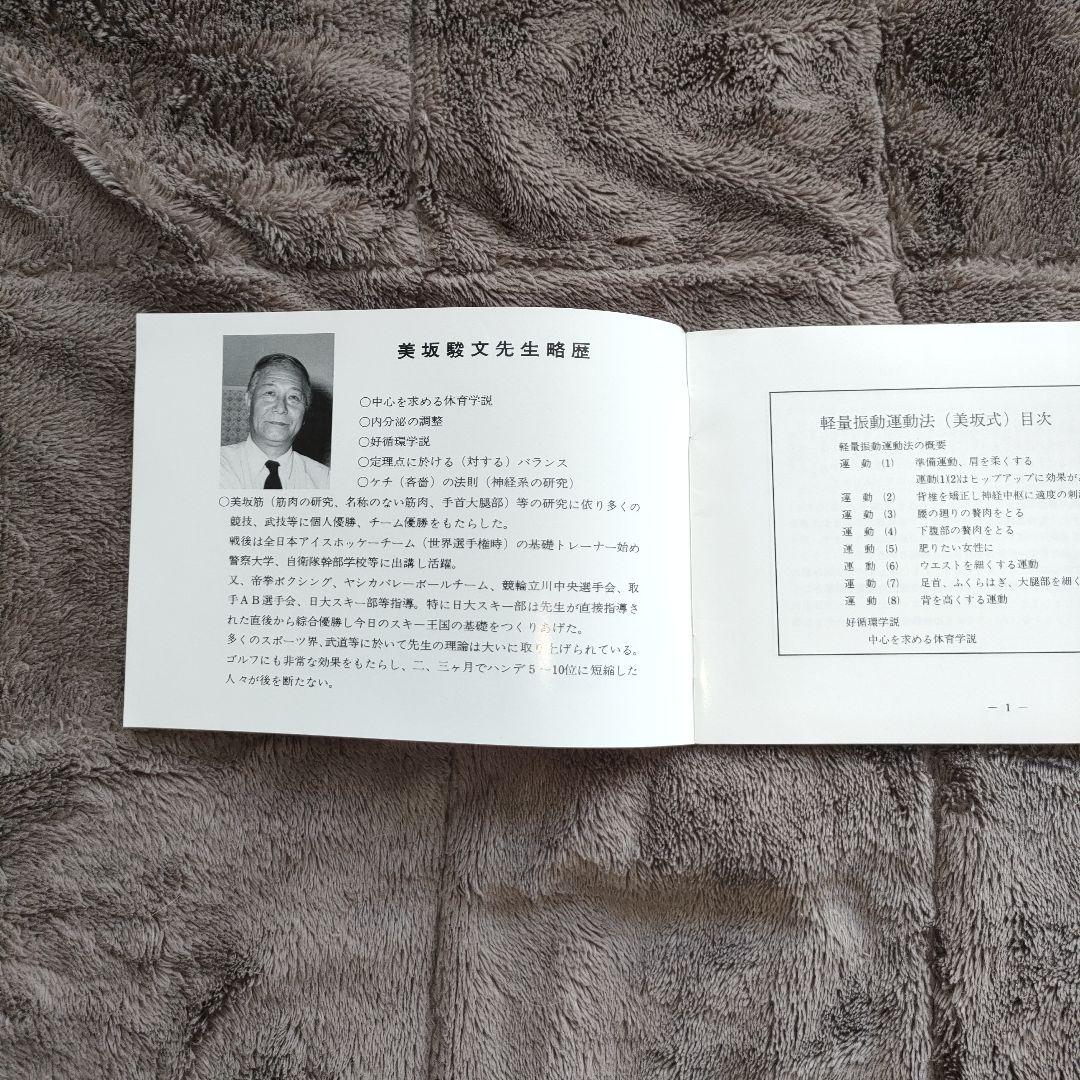 美坂駿文先生略歴
○中心を求める体育学説
○内分泌の調整
○好循環学説
○定理点に於ける（対する）バランス
○ケチ（吝嗇）の法則（神経系の研究）
○美坂筋（筋肉の研究、名称のない筋肉、手首大腿部）等の研究に依り多くの
競技、武技等に個人優勝、チーム優勝をもたらした。
戦後は全日本アイスホッケーチーム（世界選手権時）の基礎トレーナー始め
警察大学、自衛隊幹部学校等に出講し活躍。
又、帝拳ボクシング、ヤシカバレーボールチーム、競輪立川中央選手会、取
手ＡＢ選手会、日大スキー部等指導。特に日大スキー部は先生が直接指導さ
れた直後から綜合優勝し今日のスキー王国の基礎をつくりあげた。
多くのスポーツ界、武道等に於いて先生の理論は大いに取り上げられている。
ゴルフにも非常な効果をもたらし、二、三ヶ月でハンデ５～10位に短縮した
人々が後を断たない。
軽量振動運動法（美坂式）目次
軽量振動運動法の概要
運動(1) 準備運動、肩を柔くする
運動(1)(2)はヒップアップに効果があ
運動(2) 背椎を矯正し神経中枢に適度の刺
運動(3) 腰の廻りの贅肉をとる
運動(4) 下腹部の贅肉をとる
運動(5) 肥りたい女性に
運動(6) ウエストを細くする運動
運動(7) 足首、ふくらはぎ、大腿部を細く
運動(8) 背を高くする運動
好循環学説
中心を求める体育学説
－1－